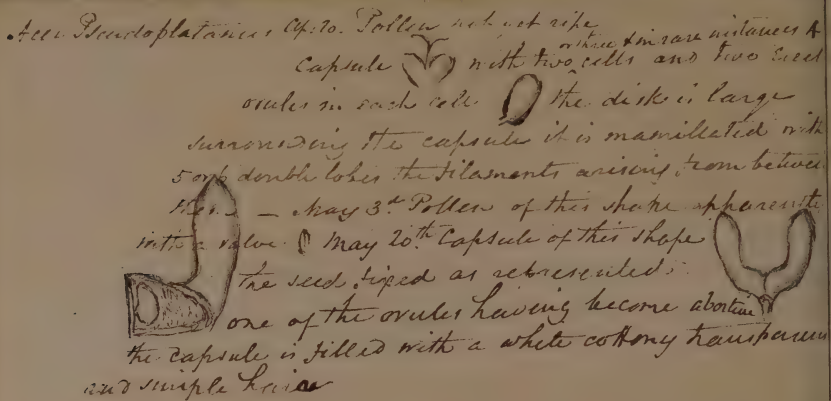 Acer Pseudoplatanus Ap. 20. Pollen not yet ripe
or three & in rare instances 4
Capsule with two cells and two Erect
ovules in each cell the disk is large
surrounding the capsule it is mamillated with
5 or 6 double lobes the filaments arising from between
them — May 3d. Pollen of this shape apparently
with a valve. May 20th Capsule of this shape
the seed fixed as represented.
one of the ovules having become abortive
the capsule is filled with a white cottony transparent
and simple hair